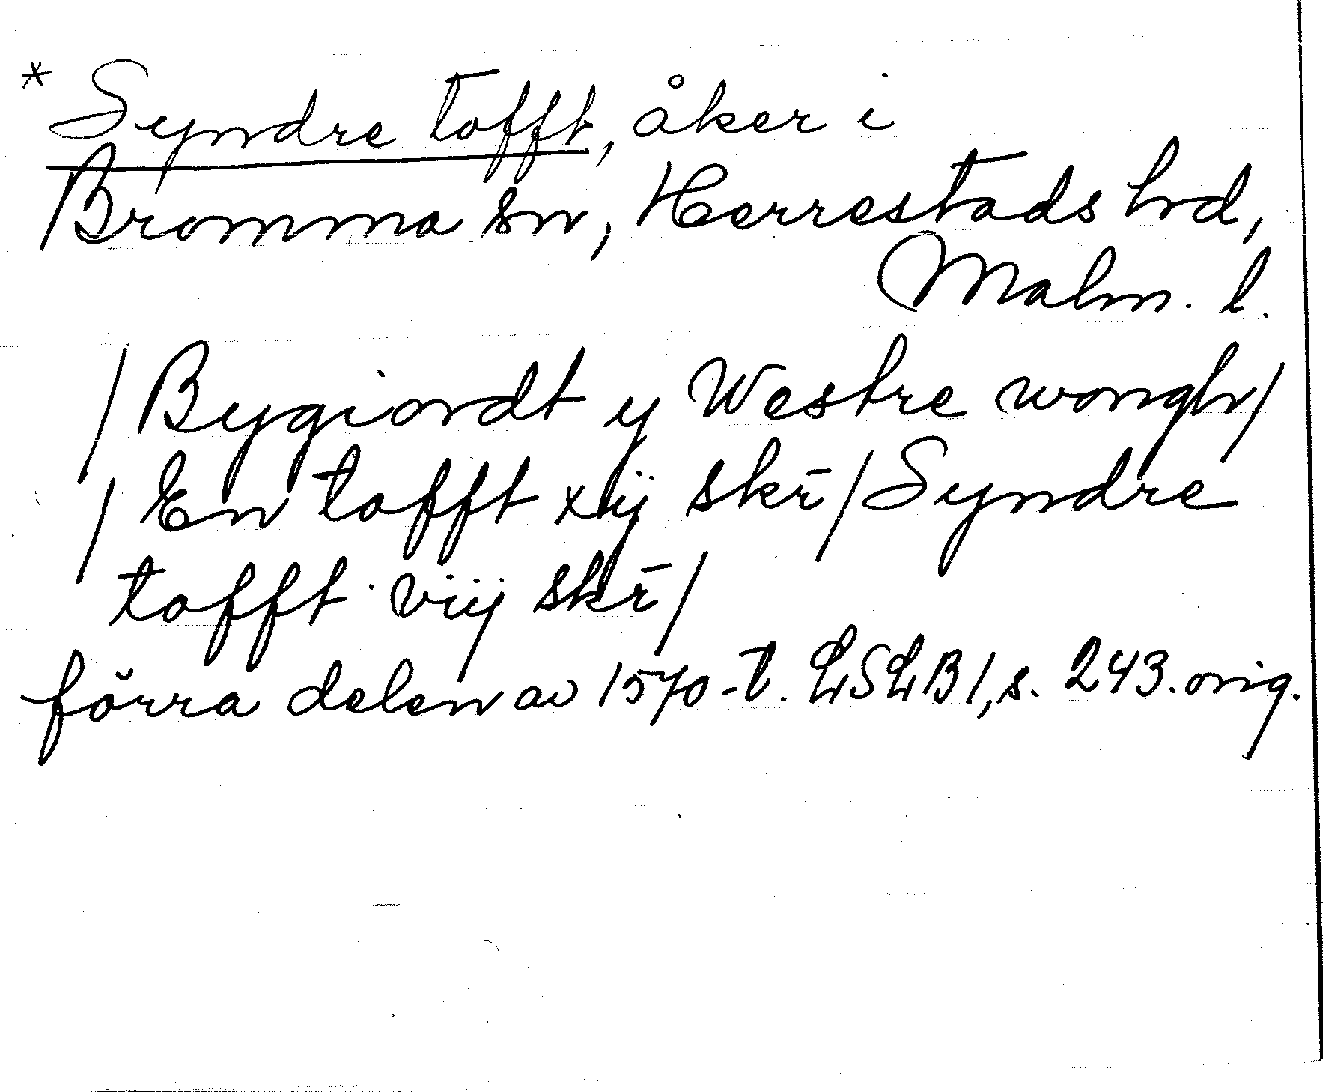 * Syndre tofft, åker i
Bromma sn, Herrestads hrd,
Malm. l.
/ Bygiordt y Westre wongh /
/ En tofft xij skr̄ / Syndre
tofft viij skr̄ /
förra delen av 1570-t. LSLB 1, s. 243. orig.